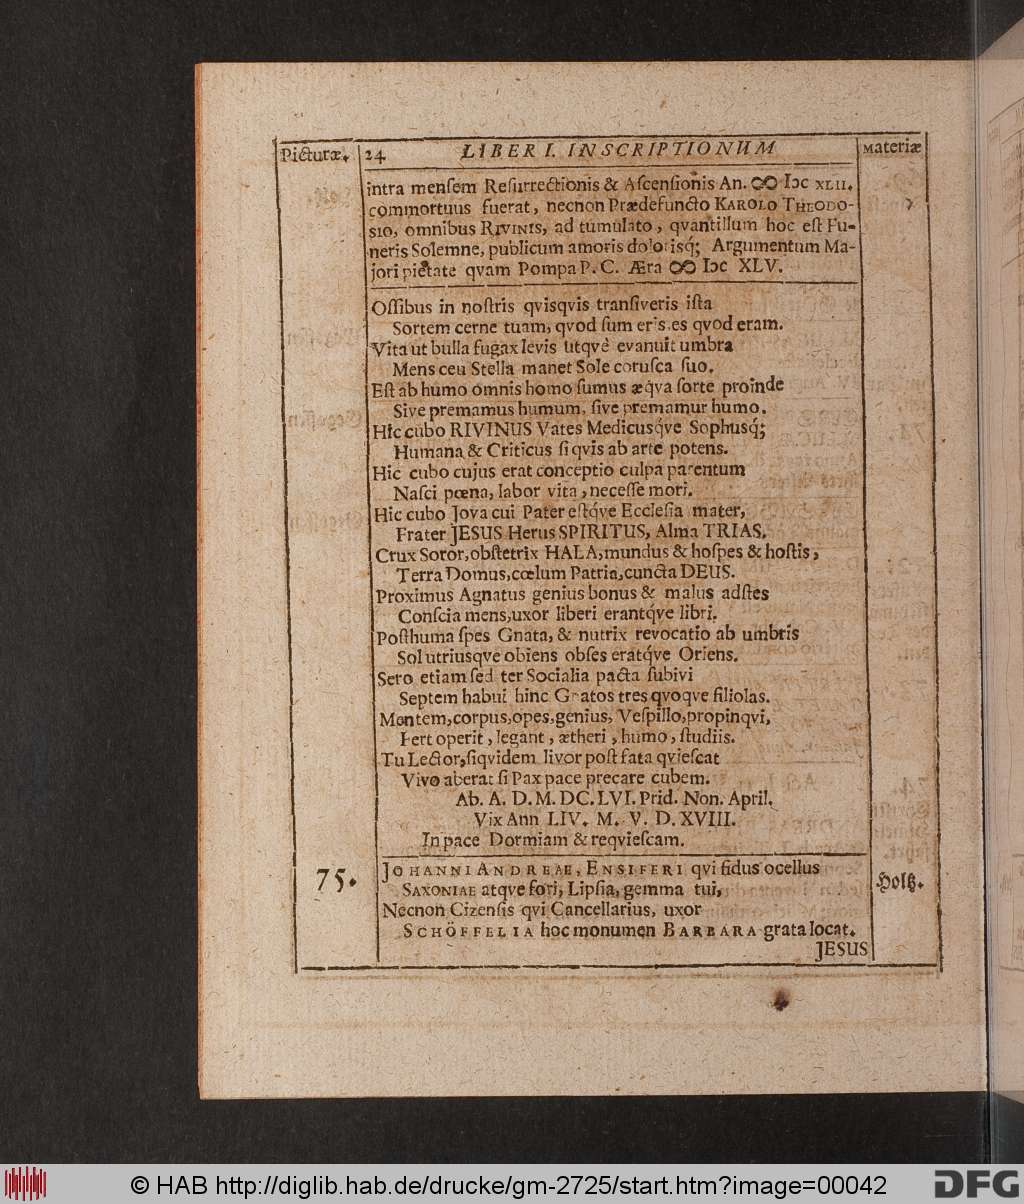 Picturæ. 24 LIBER I. INSCRIPTIONUM Materiæ
intra mensem Resurrectionis & Ascensionis An. ↀ Iↄc XLII.
commortuus fuerat, necnon Prædefuncto KAROLO THEODO-
SIO, omnibus RIVINIS, ad tumulato, qvantillum hoc est Fu-
neris Solemne, publicum amoris dolorisq́; Argumentum Ma-
jori pietate qvam Pompa P. C. Æra ↀ Iↄc XLV.
Ossibus in nostris qvisqvis transiveris ista
Sortem cerne tuam, qvod sum eris, es qvod eram.
Vita ut bulla fugax levis utqvè evanuit umbra
Mens ceu Stella manet Sole corusca suo.
Est ab humo omnis homo sumus æq́va sorte proinde
Sive premamus humum, sive premamur humo.
Hic cubo RIVINUS Vates Medicusq́ve Sophusq́;
Humana & Criticus si qvis ab arte potens.
Hic cubo cujus erat conceptio culpa parentum
Nasci pœna, labor vita, necesse mori.
Hic cubo Jova cui Pater estq́ve Ecclesia mater,
Frater JESUS Herus SPIRITUS, Alma TRIAS.
Crux Soror, obstetrix HALA, mundus & hospes & hostis,
Terra Domus, cœlum Patria, cuncta DEUS.
Proximus Agnatus genius bonus & malus adstes
Conscia mens, uxor liberi erantq́ve libri.
Posthuma spes Gnata, & nutrix revocatio ab umbris
Sol utriusqve obiens obses eratq́ve Oriens.
Sero etiam sed ter Socialia pacta subivi
Septem habui hinc Gnatos tres qvoqve filiolas.
Mentem, corpus, opes, genius, Vespillo, propinqvi,
Fert operit, legant, ætheri, humo, studiis.
Tu Lector, siqvidem livor post fata qviescat
Vivo aberat si Pax pace precare cubem.
Ab. A. D. M. DC. LVI. Prid. Non. April.
Vix Ann LIV. M. V. D. XVIII.
In pace Dormiam & reqviescam.
75. JOHANNI ANDREAE, ENSIFERI qvi fidus ocellus
SAXONIAE atqve fori, Lipsia, gemma tui, Holtz.
Necnon Cizensis qvi Cancellarius, uxor
SCHÖFFELIA hoc monumen BARBARA grata locat.
JESUS
© HAB http://diglib.hab.de/drucke/gm-2725/start.htm?image=00042
DFG